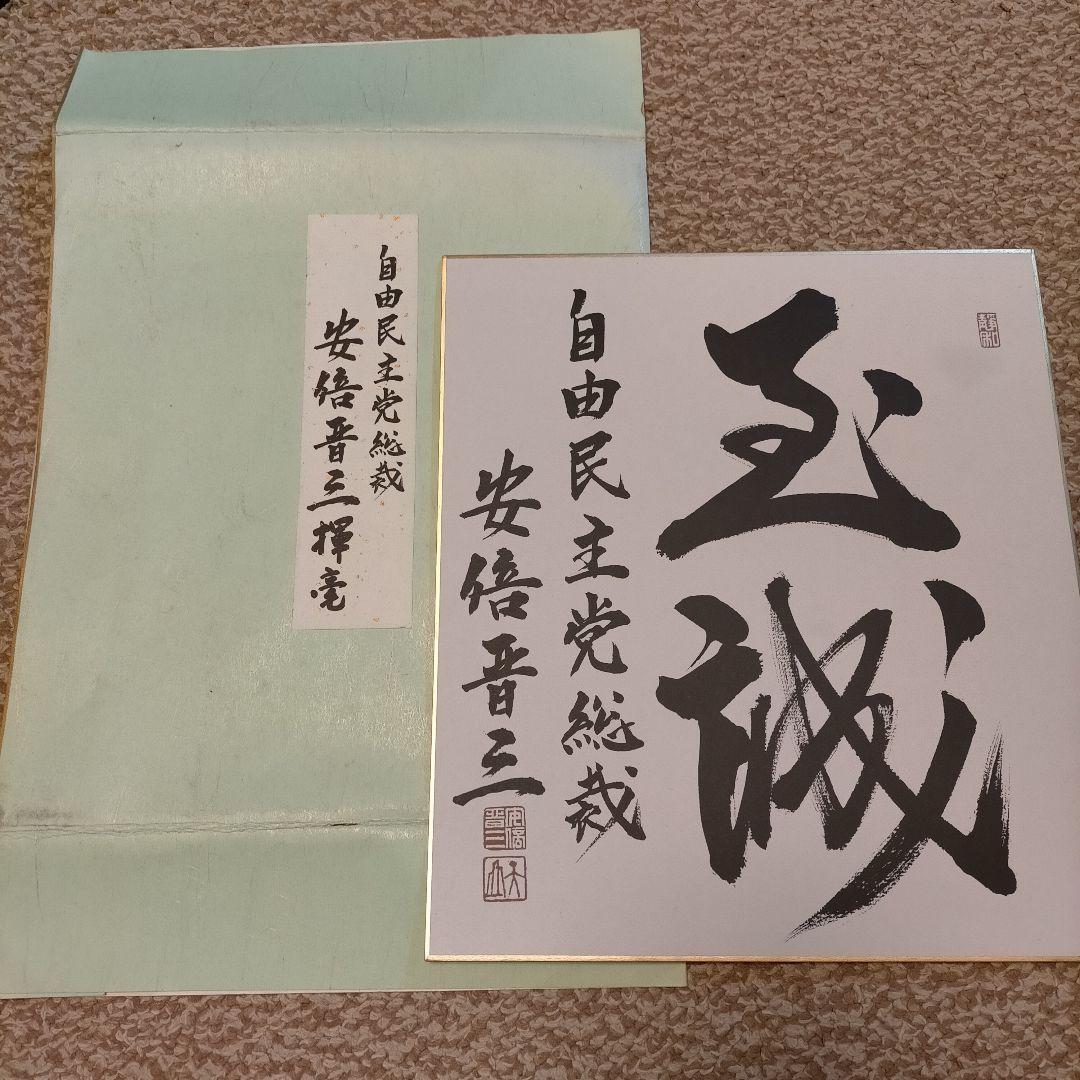 自由民主党総裁
安倍晋三揮毫
至誠
自由民主党総裁
安倍晋三
安倍
晋三